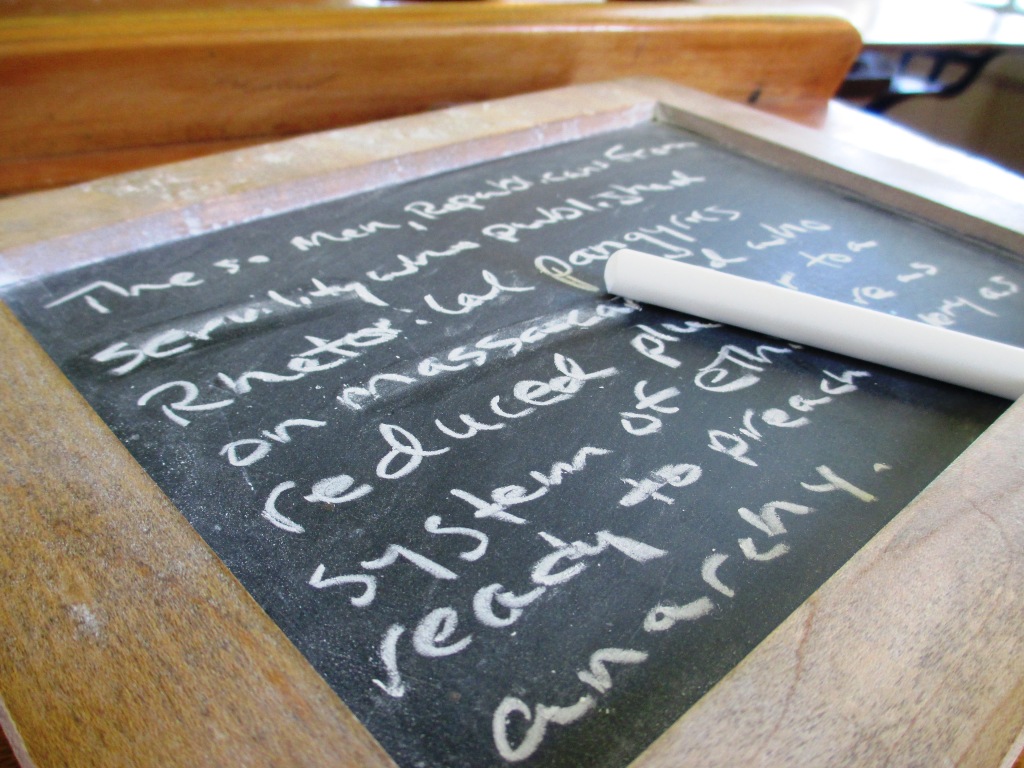 The s. Men, Republicans From
Servility who published
Rhetorical pangyrics
on massacar d who
reduced plu r to a
system of Eth. re as
ready to preach ery as
anarchy.